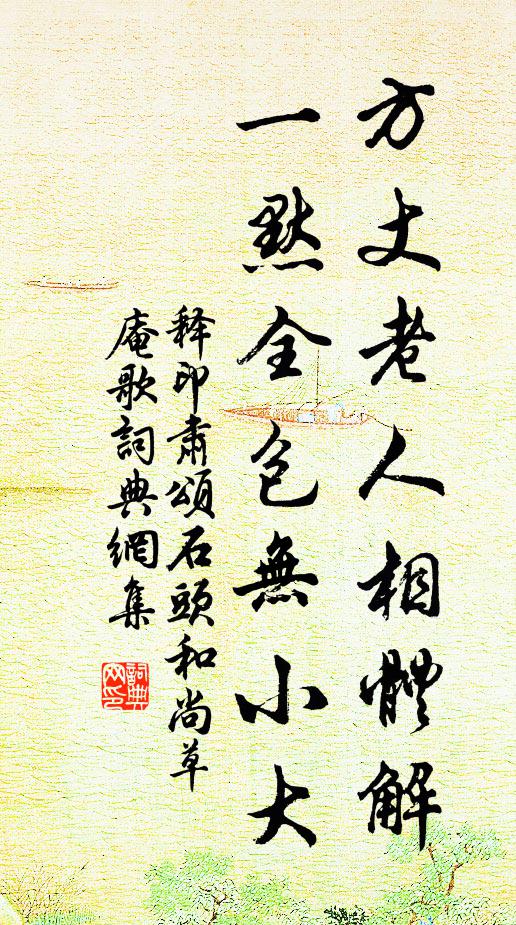 方丈老人相體解
一點全包無小大
释印肃頌石頭和尚草
庵歌詞典網集
詞典
网印